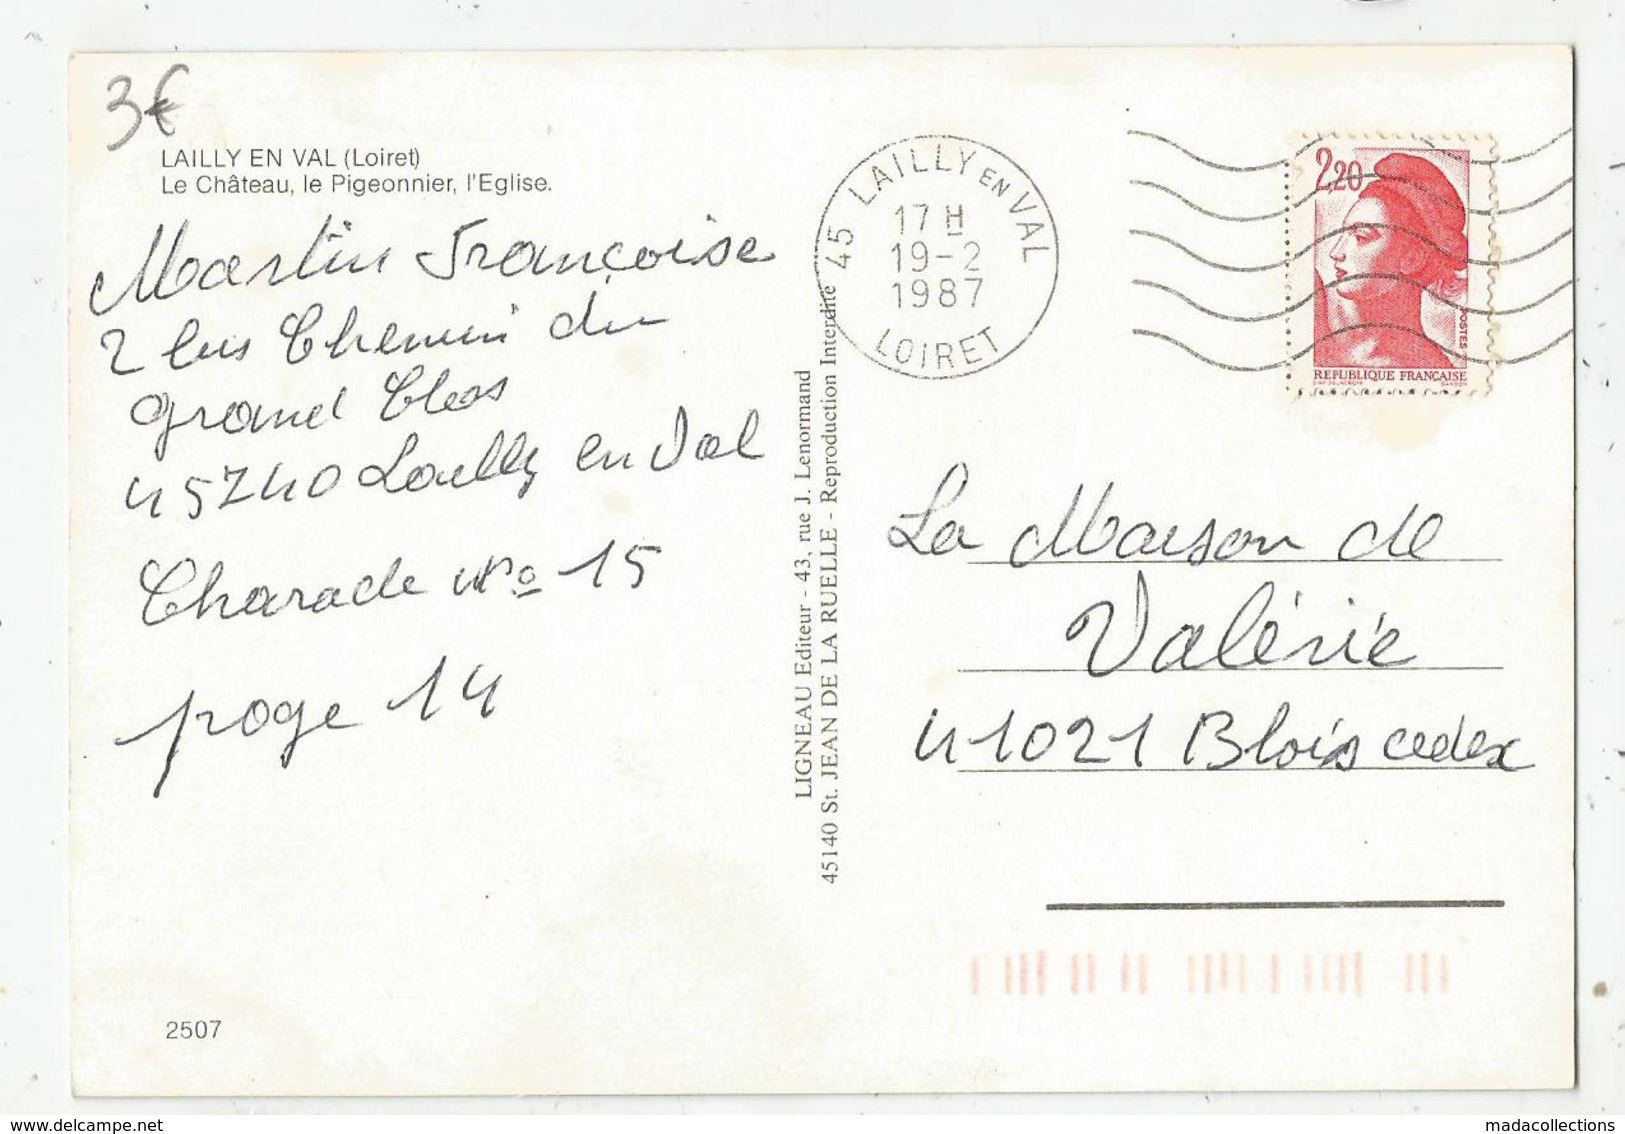 3€
LAILLY EN VAL (Loiret)
Le Château, le Pigeonnier, l'Eglise.
Martin Françoise
2 bis Chemin du
grand Clos
45740 Lailly en Val
Charade N° 15
page 14
2507
LIGNEAU Editeur - 43, rue J. Lenormand
45140 St. JEAN DE LA RUELLE - Reproduction Interdite
45 LAILLY EN VAL
17 H
19-2
1987
LOIRET
2,20
POSTES
REPUBLIQUE FRANÇAISE
La Maison de
Valérie
41021 Blois cedex
delcampe.net
madacollections